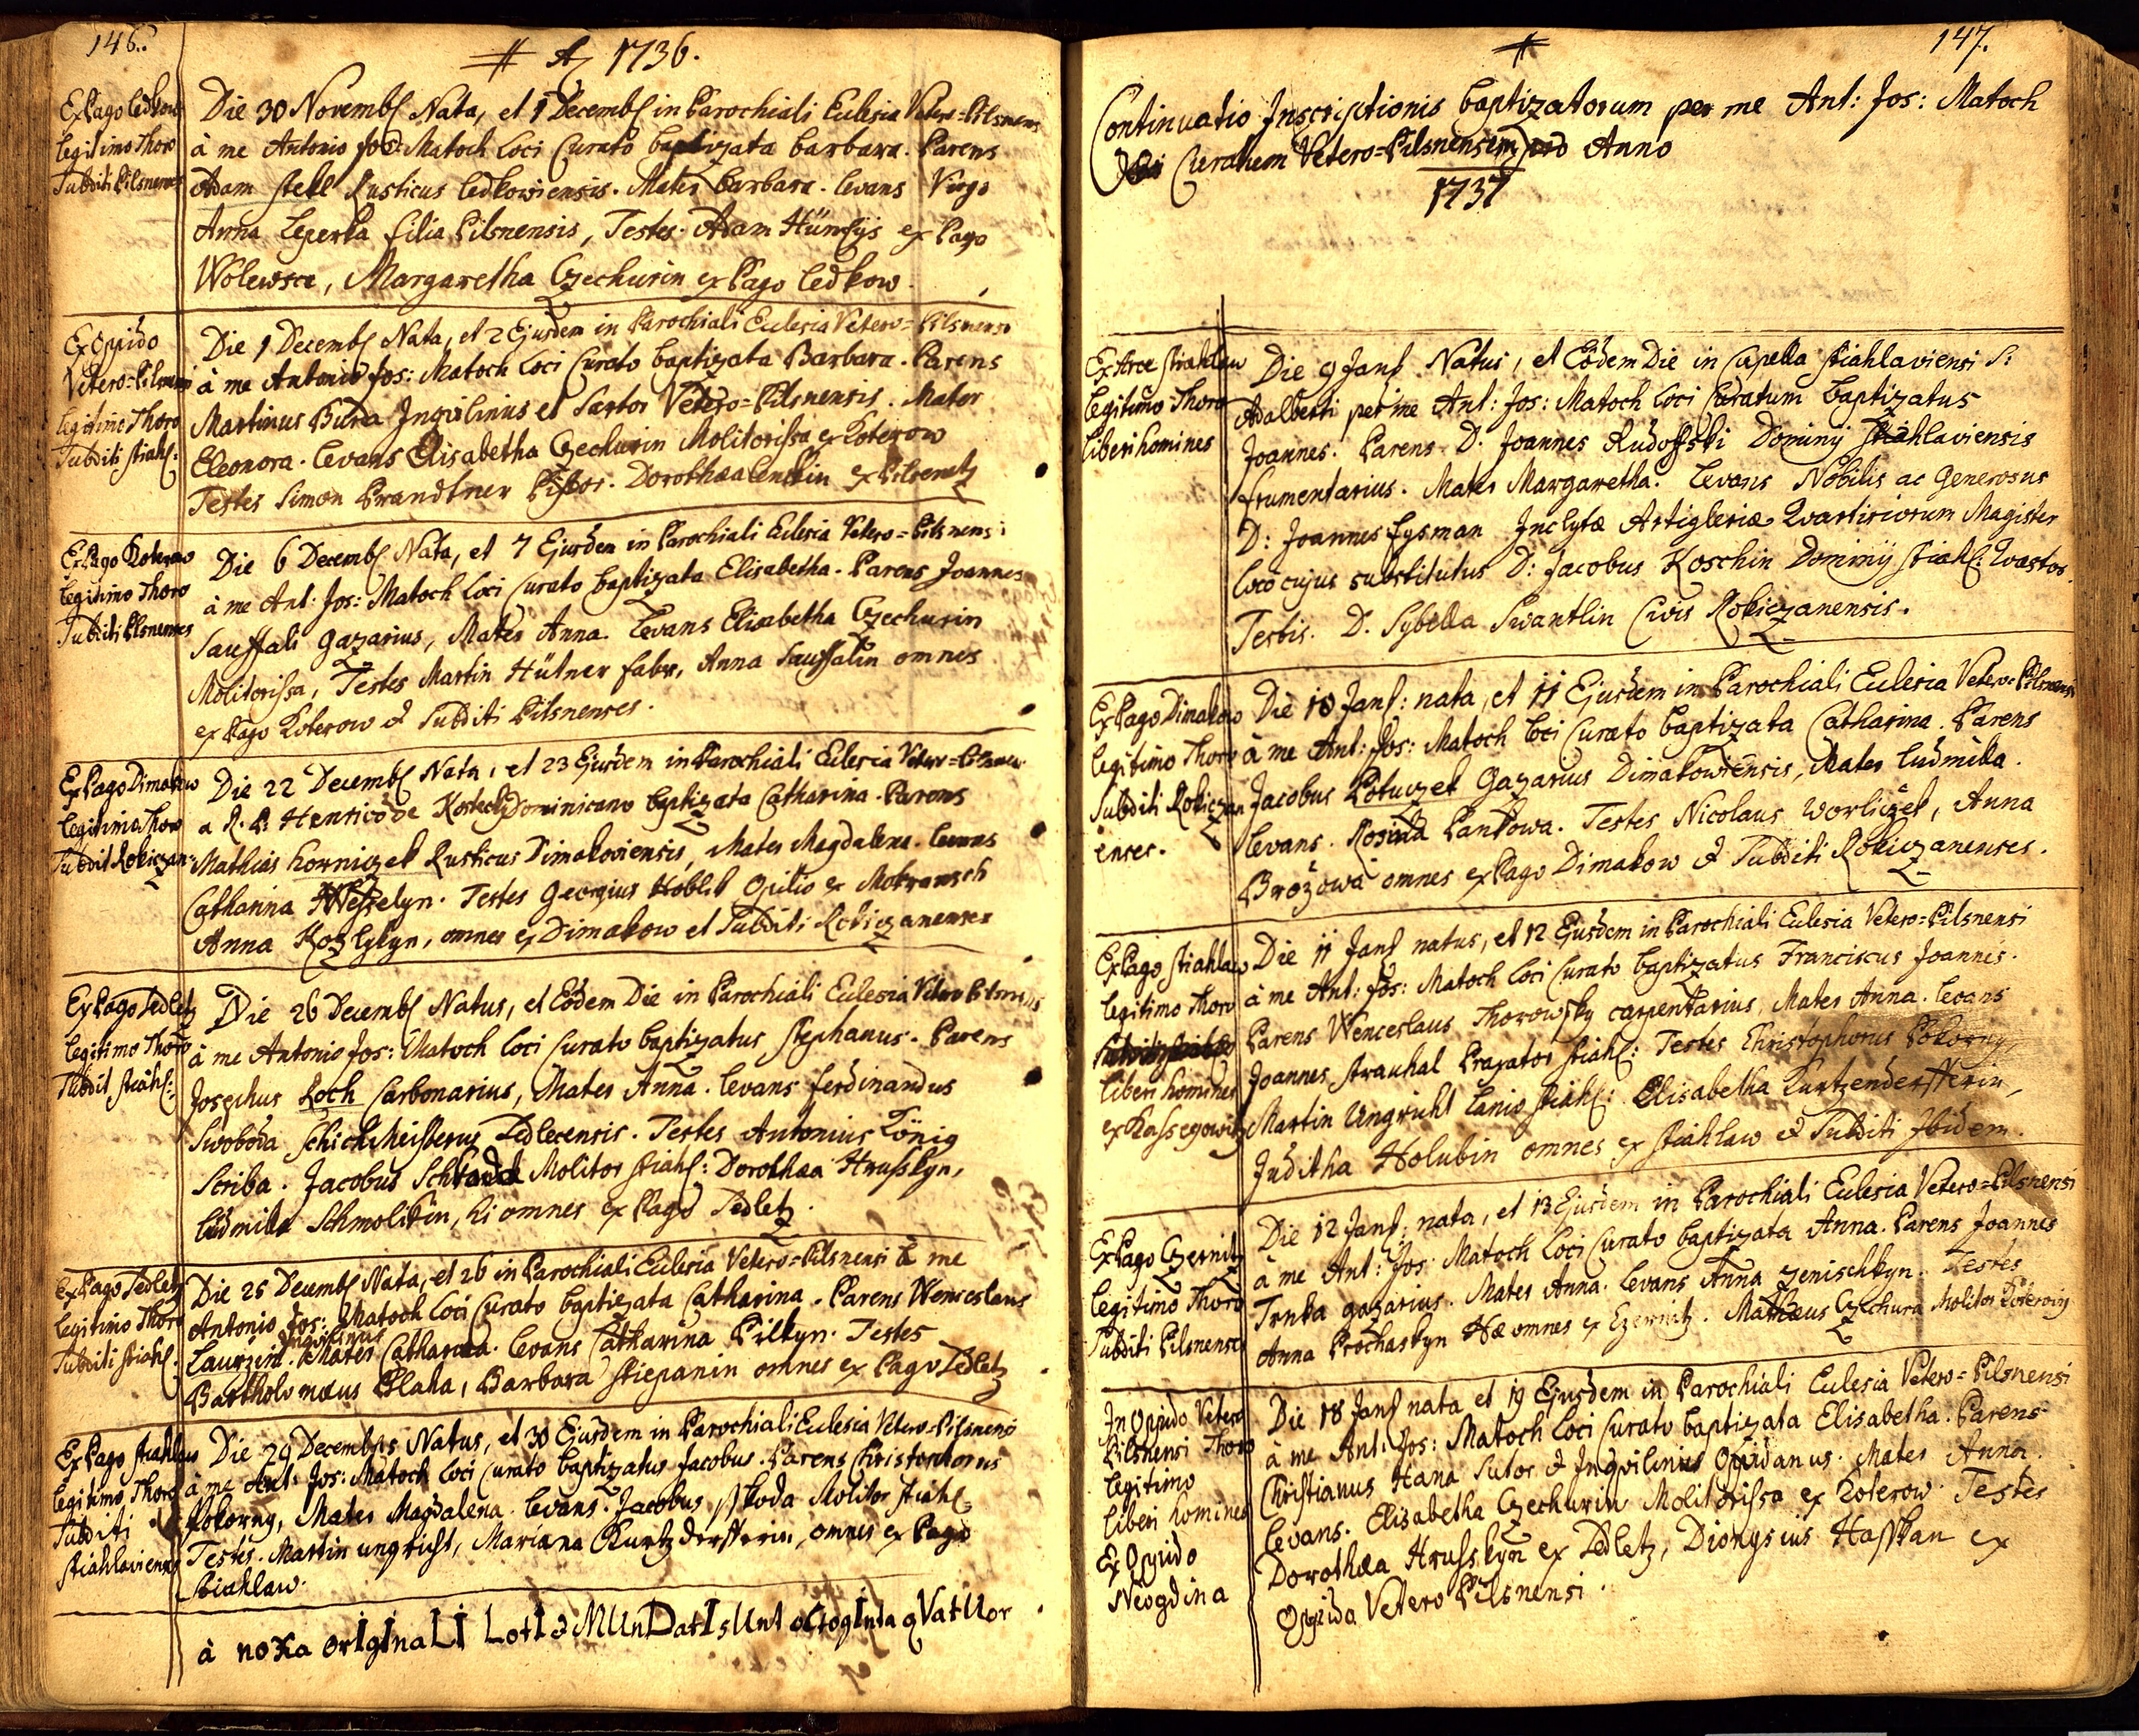 146.
# A 1736.
Ex Pago Ledkow
legitimo Thoro
Subditi Pilsnenses
Die 30 Novemb Nata, et 1 Decemb in Parochiali Eclesia Vetero=Pilsnens
à me Antonio Jos: Matoch Loci Curato baptizata barbara. Parens
Adam stekl Rusticus Ledkowiensis. Mater barbara. Levans Virgo
Anna Leperka filia Pilsnensis, Testes. Adam ex Pago
Wolewsce, Margaretha Czechurin ex Pago Ledkow.
Ex Oppido
Vetero=Pilsnensi
legitimo Thoro
Subditi stiahl:
Die 1 Decemb Nata, et 2 Ejusdem in Parochiali Eclesia Vetero=Pilsnensi
à me Antonio Jos: Matoch Loci Curato baptizata Barbara. Parens
Martinus Bura Inqvilinus et Sartor Vetero=Pilsnensis. Mater
Eleonora. Levans Elisabetha Czechurin Molitorissa ex Koterow
Testes Simon Prandtner Pistor. Dorothea ex Pilsenetz
Ex Pago Koterow
legitimo Thoro
Subditi Pilsnenses
Die 6 Decemb Nata, et 7 Ejusdem in Parochiali Eclesia Vetero=Pilsnensi
à me Ant: Jos: Matoch Loci Curato baptizata Elisabetha. Parens Joannes
Sauffali gazarius, Mater Anna. Levans Elisabetha Czechurin
Molitorissa, Testes Martin Hütner faber, Anna Sauffalin omnes
ex Pago Koterow & Subditi Pilsnenses.
Ex Pago Dimakow
legitimo Thoro
Subditi Rokiczan:
Die 22 Decemb Nata, et 23 Ejusdem in Parochiali Eclesia Vetero=Pilsnensi
a R. P: Henrico de Dominicano baptizata Catharina. Parens
Mathias horniczek Rusticus Dimakoviensis, Mater Magdalena. Levans
Catharina Wesselyn. Testes Georgius Opilio ex Mokrausch
Anna Kozlykyn, omnes ex Dimakow et Subditi Rokiczanenses
Ex Pago Sedletz
legitimo Thoro
Subdit stiahl:
Die 26 Decemb Natus, et Eodem Die in Parochiali Eclesia Vetero Pilsnensi
à me Antonio Jos: Matoch Loci Curato baptizatus stephanus. Parens
Josephus Loch Carbonarius, Mater Anna. Levans ferdinandus
Swoboda Schichtmeisterus Sedlecensis. Testes Antonius König
Scriba. Jacobus Molitor stiahl: Dorothea Hrusskyn,
Ludmila Schmolikin, hi omnes ex Pago Sedletz.
Ex Pago Sedletz
legitimo Thoro
Subditi stiahl.
Die 25 Decemb Nata, et 26 in Parochiali Eclesia Vetero=Pilsnensi à me
Antonio Jos: Matoch Loci Curato baptizata Catharina. Parens Wenceslaus
Inqvilinus
Laurzin. Mater Catharina. Levans Catharina Pilkyn. Testes
Bartholomæus Blaha, Barbara stiepanin omnes ex Pago Sedletz
Ex Pago stiahlaw
legitimo Thoro
Subditi
stiahlavienses
Die 29 Decembris Natus, et 30 Ejusdem in Parochiali Eclesia Vetero=Pilsnensi
à me Ant: Jos: Matoch Loci Curato baptizatus Jacobus. Parens Christophorus
Pokorny, Mater Magdalena. Levans. Jacobus sskoda Molitor stiahl:
Testes. Martin ungricht, Mariana Kurtzderfferin, omnes ex Pago
stiahlaw.
à noXa orIgInaLI LotI & MUnDatI sUnt oCtogInta qVatUor
147.
#
Continuatio Inscriptionis baptizatorum per me Ant: Jos: Matoch
Curatum Vetero=Pilsnensem Anno
1737
Ex Arce stiahlaw
legitimo Thoro
liberi homines
Die 9 Jan Natus, et Eodem Die in Capella stiahlaviensi S:
Adalberti per me Ant: Jos: Matoch Loci Curatum baptizatus
Joannes. Parens D. Joannes Rudoffski Dominij stiahlaviensis
frumentarius. Mater Margaretha. Levans Nobilis ac Generosus
D: Joannes Eysman Inclytæ Artigleriæ Quartiriorum Magister
loco cujus substitutus D: Jacobus Koschin Dominij stiahl: Quastor.
Testis. D. Sybella Swantlin Civis Rokiczanensis.
Ex Pago Dimakow
legitimo Thoro
Subditi Rokiczan
enses.
Die 10 Jan: nata, et 11 Ejusdem in Parochiali Eclesia Vetero=Pilsnensi
à me Ant: Jos: Matoch Loci Curato baptizata Catharina. Parens
Jacobus Potuczek Gazarius Dimakowiensis, Mater Ludmila.
Levans. Rosina Pankowa. Testes Nicolaus Worliczek, Anna
Brožowa omnes ex Pago Dimakow & Subditi Rokiczanenses.
Ex Pago stiahlaw
legitimo Thoro
liberi homines
ex Kassegowitz
Die 11 Jan natus, et 12 Ejusdem in Parochiali Eclesia Vetero=Pilsnensi
à me Ant: Jos: Matoch Loci Curato baptizatus Franciscus Joannes.
Parens Wenceslaus Thorowsky carpentarius, Mater Anna. Levans
Joannes strauhal Praxator stiahl: Testes Christophorus Pokorny,
Martin Ungricht Lanio stiahl: Elisabetha Kurtzenderfferin,
Juditha Holubin omnes ex stiahlaw & Subditi Ibidem.
Ex Pago Czernitz
legitimo Thoro
Subditi Pilsnenses
Die 12 Jan: nata, et 13 Ejusdem in Parochiali Eclesia Vetero=Pilsnensi
à me Ant: Jos: Matoch Loci Curato baptizata Anna. Parens Joannes
Trnka gazarius. Mater Anna. Levans Anna Zenischkyn. Testes
Anna Prochaskyn Hæ omnes ex Czernitz. Mathæus Czechura Molitor
In Oppido Vetero
Pilsnensi Thoro
legitimo
liberi homines
Ex Oppido
Neogdina
Die 18 Jan nata et 19 Ejusdem in Parochiali Eclesia Vetero=Pilsnensi
à me Ant: Jos: Matoch Loci Curato baptizata Elisabetha. Parens
Christianus Hana Sutor & Inqvilinius Oppidanus. Mater Anna.
Levans. Elisabetha Czechurin Molitorissa ex Koterow. Testes
Dorothea Hrusskyn ex Sedletz, Dionysius Hasskan ex
Oppido Vetero Pilsnensi.